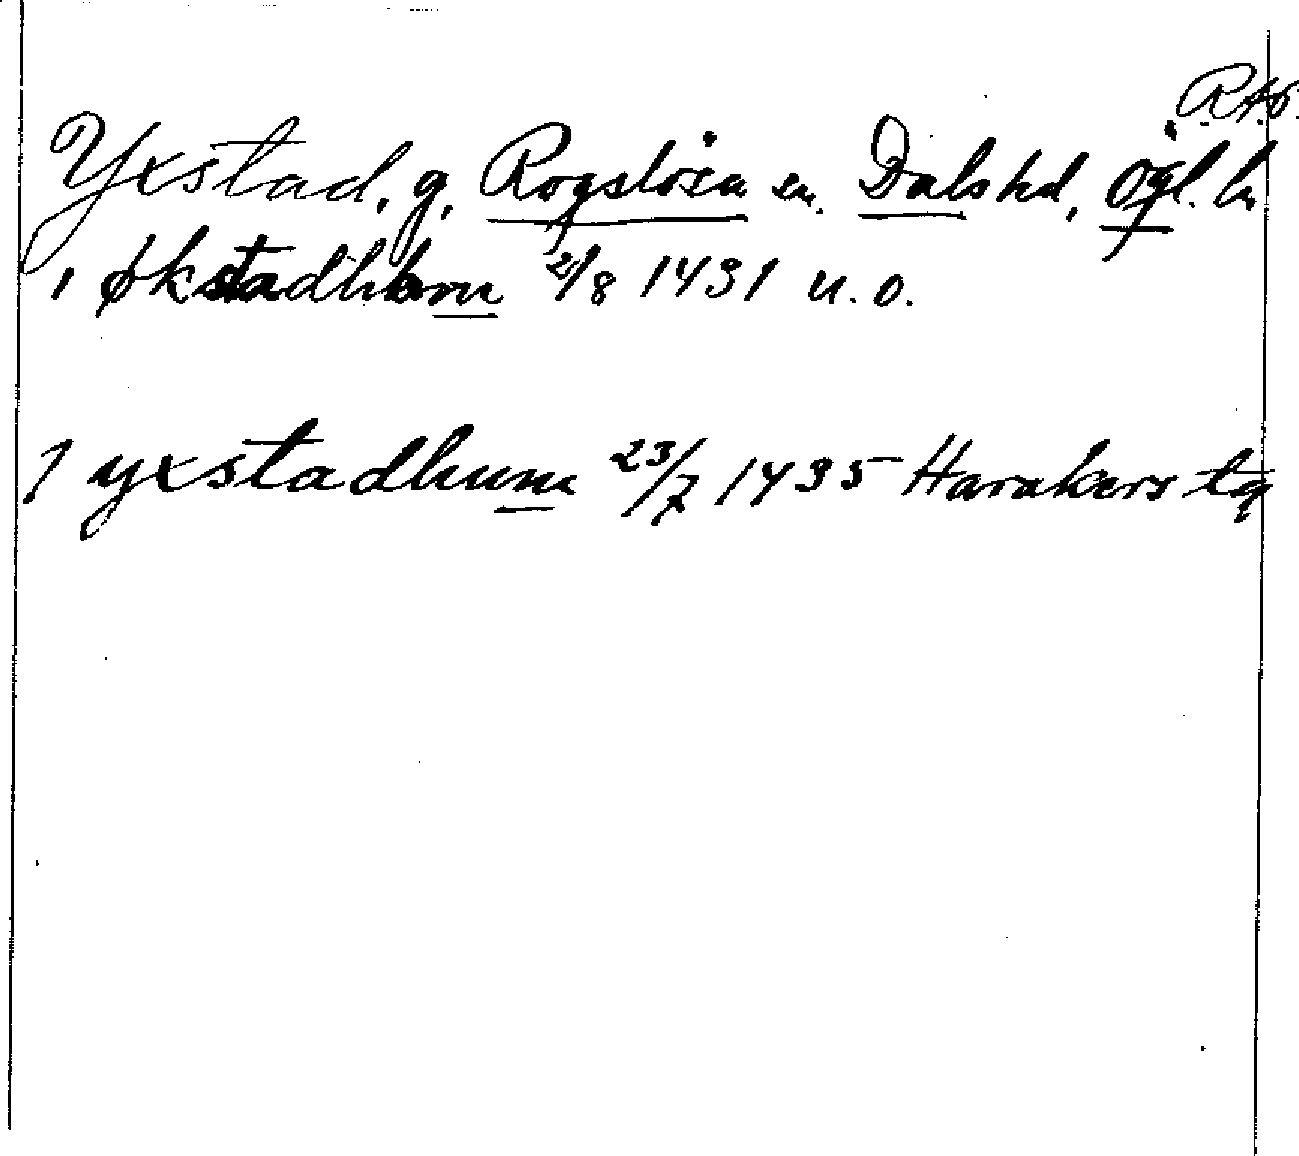 R.A.Ö.
Yxstad, g, Rogslösa sn. Dals hd, Ögl. ln
i økstadhum 2/8 1431 u. o.
J yxstadhum 23/7 1435 Harakers tg